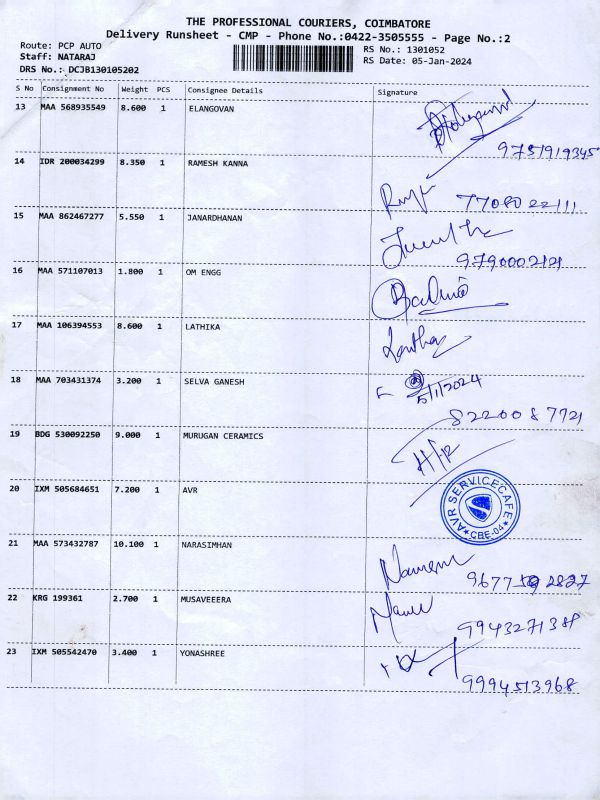 THE PROFESSIONAL COURIERS, COIMBATORE
Delivery Runsheet - CMP - Phone No.:0422-3505555 - Page No.:2
Route: PCP AUTO
RS No.: 1301052
Staff: NATARAJ
RS Date: 05-Jan-2024
DRS No.: DCJB130105202
S No Consignment No Weight PCS Consignee Details Signature
13 MAA 568935549 8.600 1 ELANGOVAN
9751919345
14 IDR 200034299 8.350 1 RAMESH KANNA
77080 22111
15 MAA 862467277 5.550 1 JANARDHANAN
9790002121
16 MAA 571107013 1.800 1 OM ENGG
17 MAA 106394553 8.600 1 LATHIKA
18 MAA 703431374 3.200 1 SELVA GANESH
5/1/2024
822008 7721
19 BDG 530092250 9.000 1 MURUGAN CERAMICS
H/R
20 IXM 505684651 7.200 1 AVR
AVR SERVICECAFE
CBE-04
21 MAA 573432787 10.100 1 NARASIMHAN
22 KRG 199361 2.700 1 MUSAVEEERA
23 IXM 505542470 3.400 1 YONASHREE
9994513968